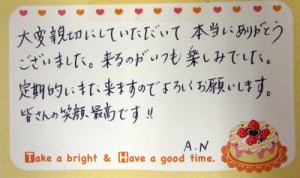 大変親切にしていただいて 本当にありがとう
ございました。来るのがいつも楽しみでした。
定期的にまた来ますのでよろしくお願いします。
皆さんの笑顔最高です!!
A.N
Take a bright & Have a good time.